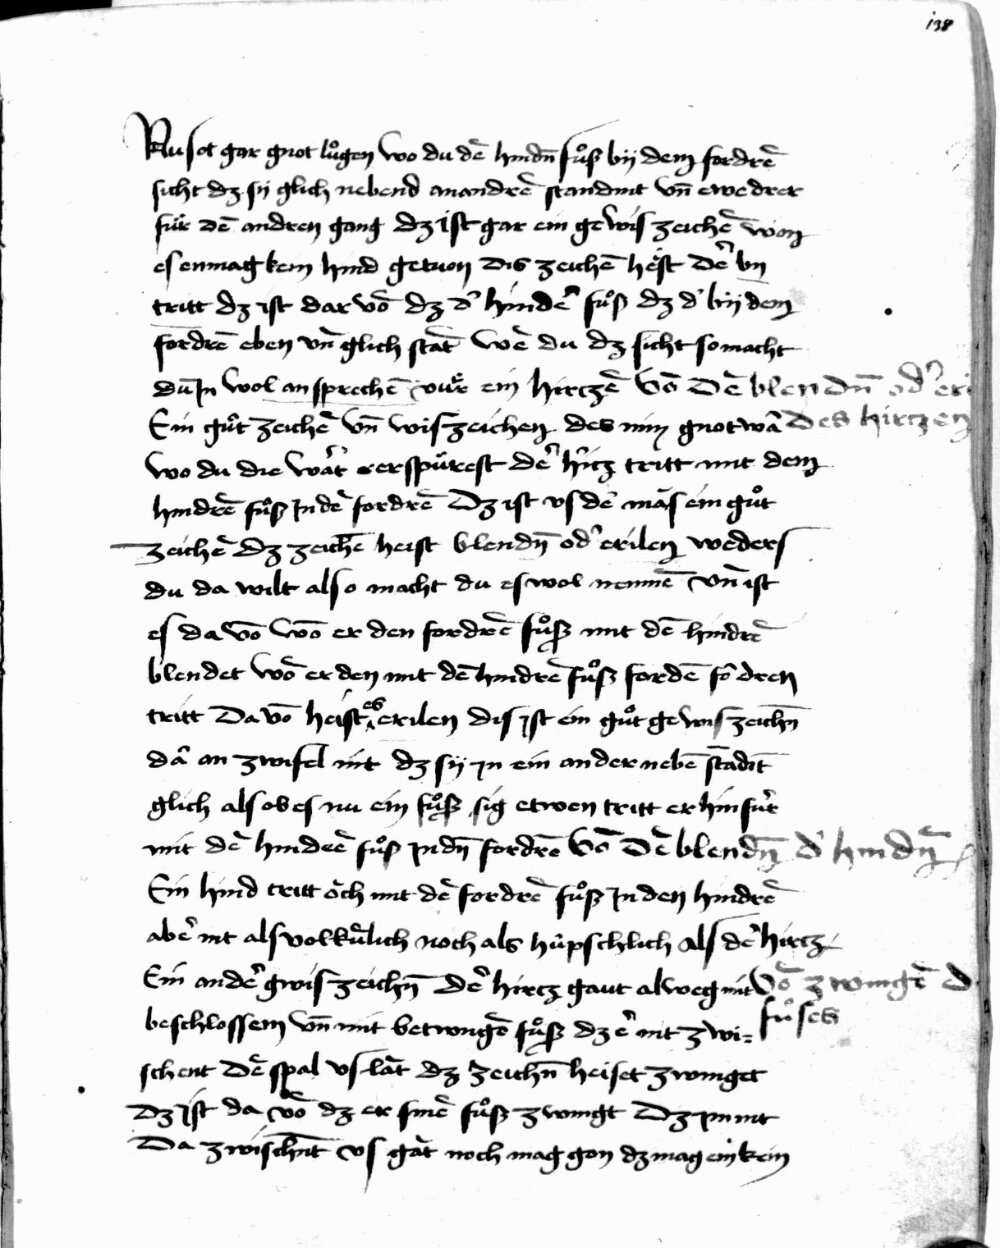 138
Nu sot gar gnot lůgen wo du dē hindn̄ fůsz bij dem fordrē
sicht dz sij glich nebend anandrē standint vn̄ ewedrer
für dē andren gang dz ist gar ein gewis zeichē won
es enmag kein hind getuon dis zeichē hest dē bij
tritt dz ist dar vō dz d' hinder fůsz dz d' bij dem
fordrē eben vn̄ glich stāt wē du dz sicht so macht
du In wol an sprechē vür ein hirczē Vō dē blendn̄ od' eri
Ein gůt zeichē vn̄ wiszeichen des nim gnot war des hirczen
wo du die wārt erspürest der hircz tritt mit dem
hindrē fůsz In dē fordrē Dz ist vs dē mās ein gůt
zeichē dz zeichē heist blendn̄ od' erilen weders
du da wilt also macht du es wol nennē vn̄ ist
es da vō wō er den fordrē fůsz mit dē hindrē
blendet wō er den mit dē hindrē fůsz fordē fodren
tritt Da vō heist es erilen dis ist ein gůt gewis zeichn̄
dar an zwifel nit dz sij in ein ander nebē stādit
glich als ob es nu ein fůsz sig etwen tritt er hinfür
mit dē hindrē fůsz In dn̄ fordrē Vō dē blendn̄ d' hindn̄
Ein hind tritt ōch mit dē fordrē fůsz In den hindrē
aber nit als volkūlich noch als hüpschlich als der hircz
Ein ander gwis zeichn̄ Der hircz gaut alweg mit Vō zwingē d
beschlossem vn̄ mit betwngē fůsz dz er nit zwi= fůses
schent dē spal vs lāt dz zeichn̄ heiset zwinget
dz ist da vō dz er sinē fůsz zwingt Dz im nit
Da zwischn̄t vs gāt noch mag gon dz mag ein kein